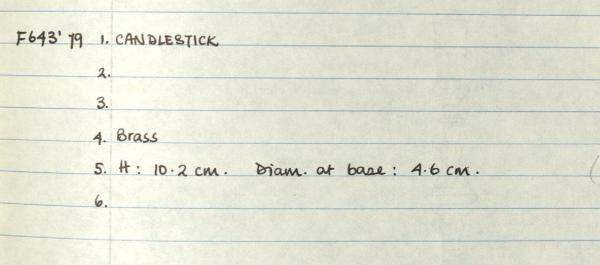 F643' 79 1. CANDLESTICK
2.
3.
4. Brass
5. H: 10.2 cm. Diam. at base: 4.6 cm.
6.